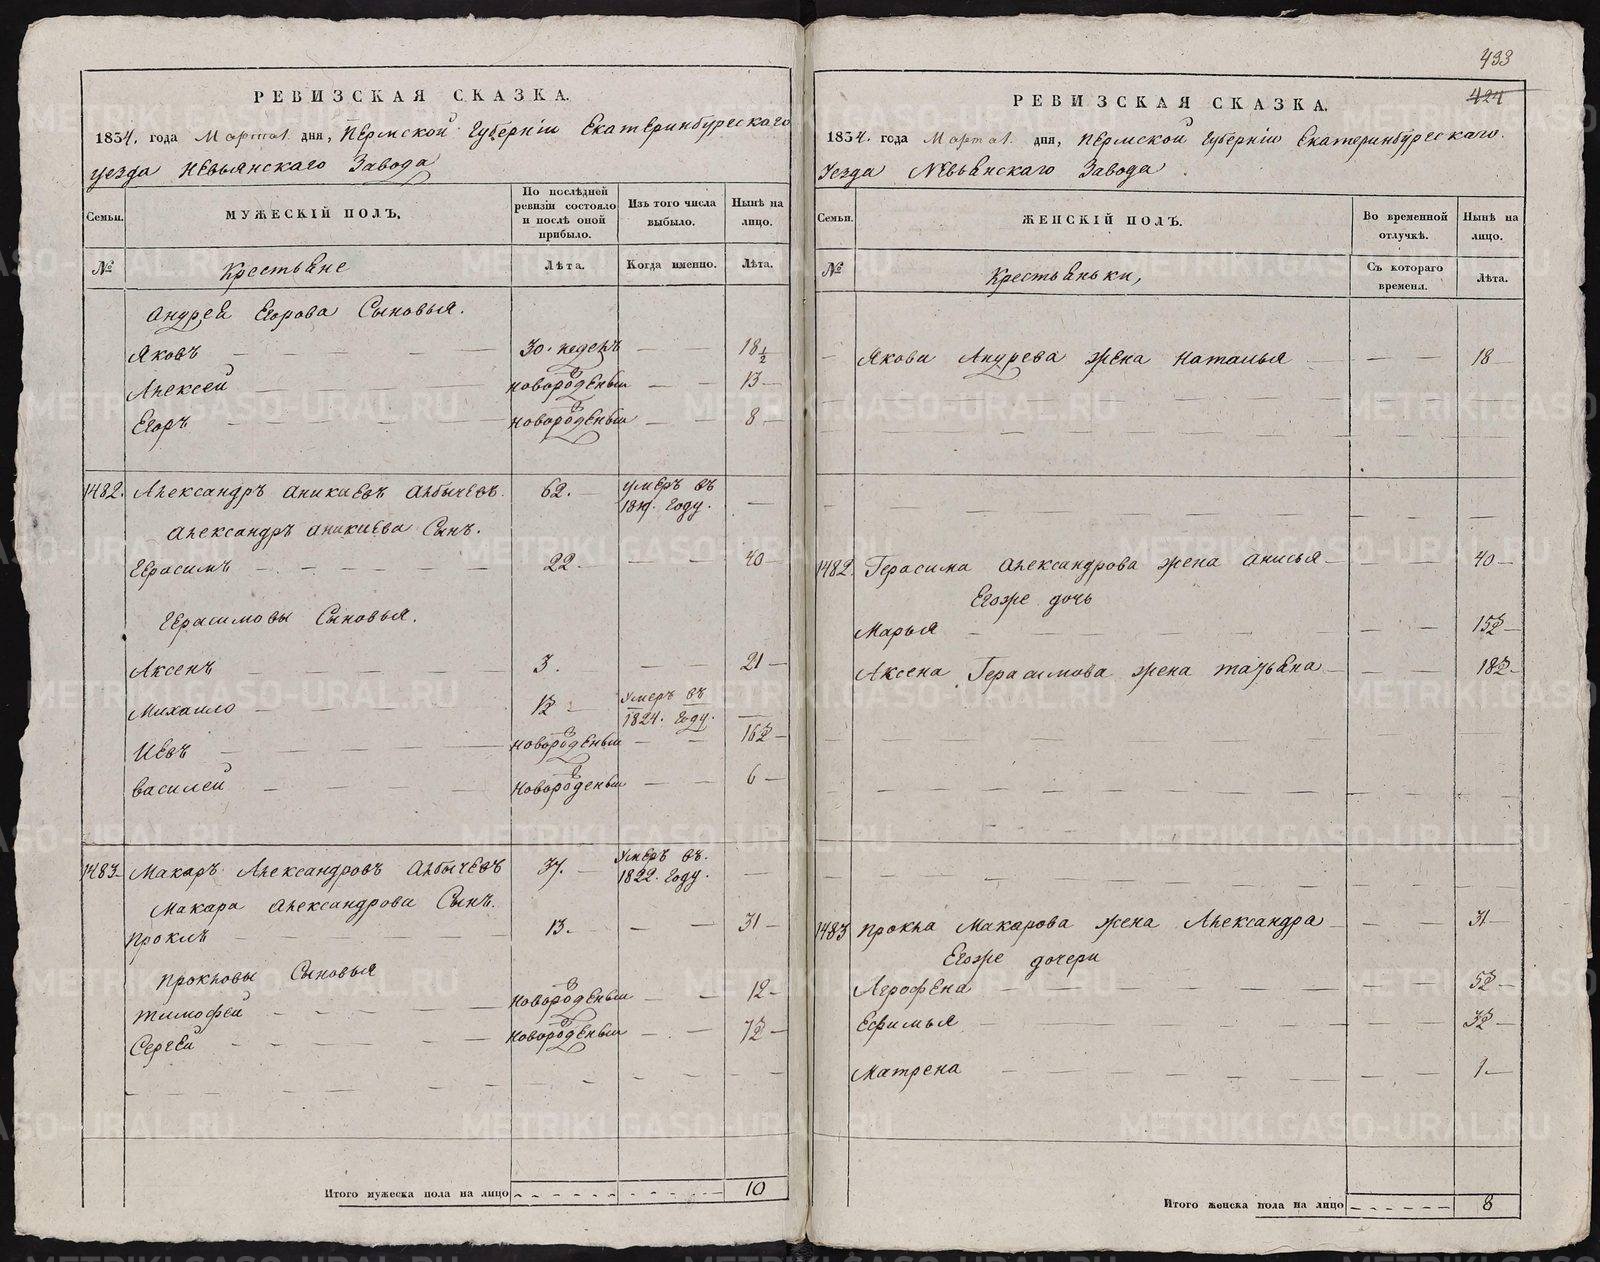 РЕВИЗСКАЯ СКАЗКА.
1834. года Марта 1. дня, Пермской Губерніи Екатеринбургскаго
уезда Невьянскаго Завода
Семьи.
МУЖЕСКІЙ ПОЛЪ.
По послѣдней ревизіи состояло и послѣ оной прибыло.
Изъ того числа выбыло.
Нынѣ на лицо.
№
Крестьяне
Лѣта.
Когда именно.
Лѣта.
Андрей Егорова Сыновья.
Яковъ 30. недель 18 1/2
Алексей новорожденый 13
Егоръ новорожденый 8
1482. Александръ Аникиевъ Алыбычевъ. 62. умеръ въ
Александръ Аникиева Сынъ.
Герасимъ 22. 40
Герасимовы Сыновья.
Аксенъ 3. 21
Михаило умеръ въ 1824. Году.
Иевъ новорожденый
Василей новорожденый 6
1483. Макаръ Александровъ 37. умеръ въ 1822. Году.
Макара Александрова Сынъ.
Проклъ 13. 31
Прокловы Сыновья
Тимофей новорожденый 12
Сергей новорожденый
Итого мужеска пола на лицо 10
433
424
РЕВИЗСКАЯ СКАЗКА.
1834. года Марта 1. дня, Пермской Губерніи Екатеринбургскаго.
Уезда Невьянскаго Завода
Семьи.
ЖЕНСКІЙ ПОЛЪ.
Во временной отлучкѣ.
Нынѣ на лицо.
№
Крестьянки,
Съ котораго времени.
Лѣта.
Якова Андреева жена Наталья 18
1482. Герасима Александрова жена Анисья 40
Егоже дочь
Марья
Аксена Герасимова жена Татьяна
1483 Прокла Макарова жена Александра 31
Егоже дочери
Агрофена
Ефимья
Матрена 1
Итого женска пола на лицо 8
METRIKI.GASO-URAL.RU